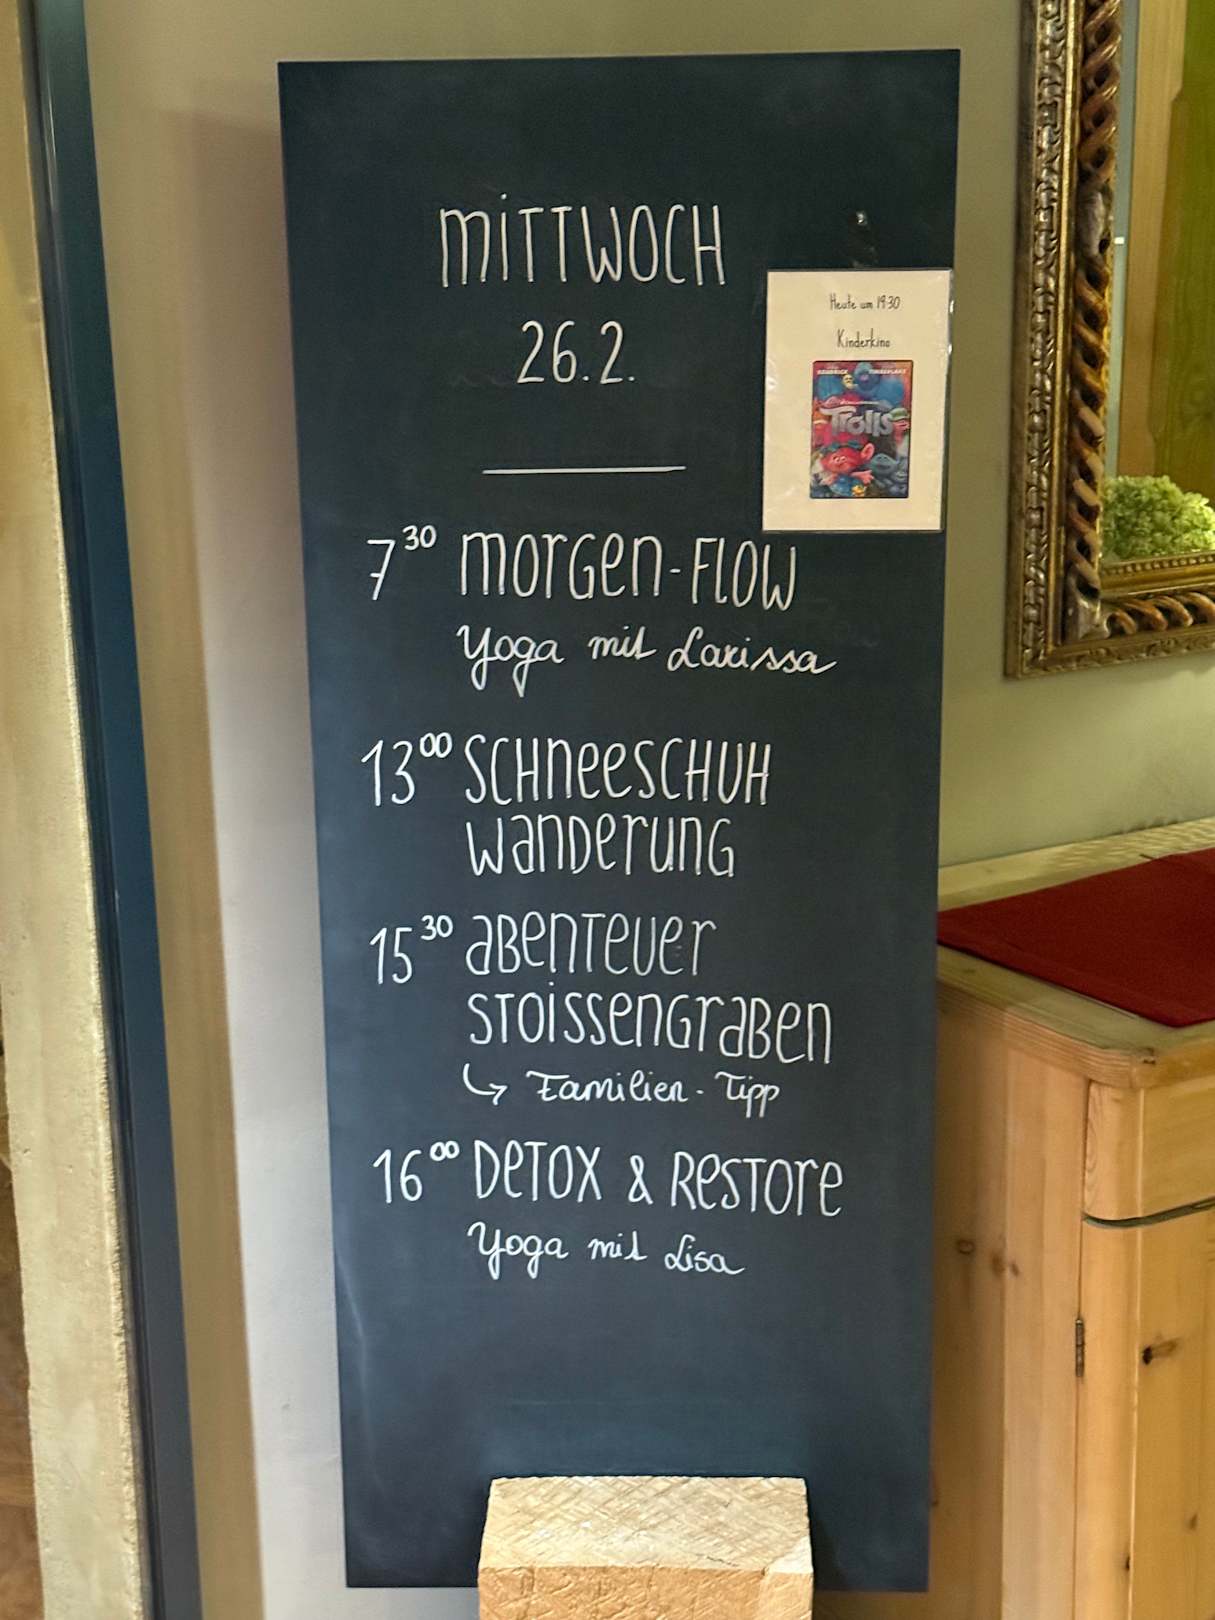 MITTWOCH
26.2.
Heute um 19:30
Kinderkino
KENDRICK TIMBERLAKE
Trolls
7³⁰ MORGEN-FLOW
Yoga mit Larissa
13⁰⁰ SCHNEESCHUH
WANDERUNG
15³⁰ ABENTEUER
STOISSENGRABEN
↳ Familien-Tipp
16⁰⁰ DETOX & RESTORE
Yoga mit Lisa